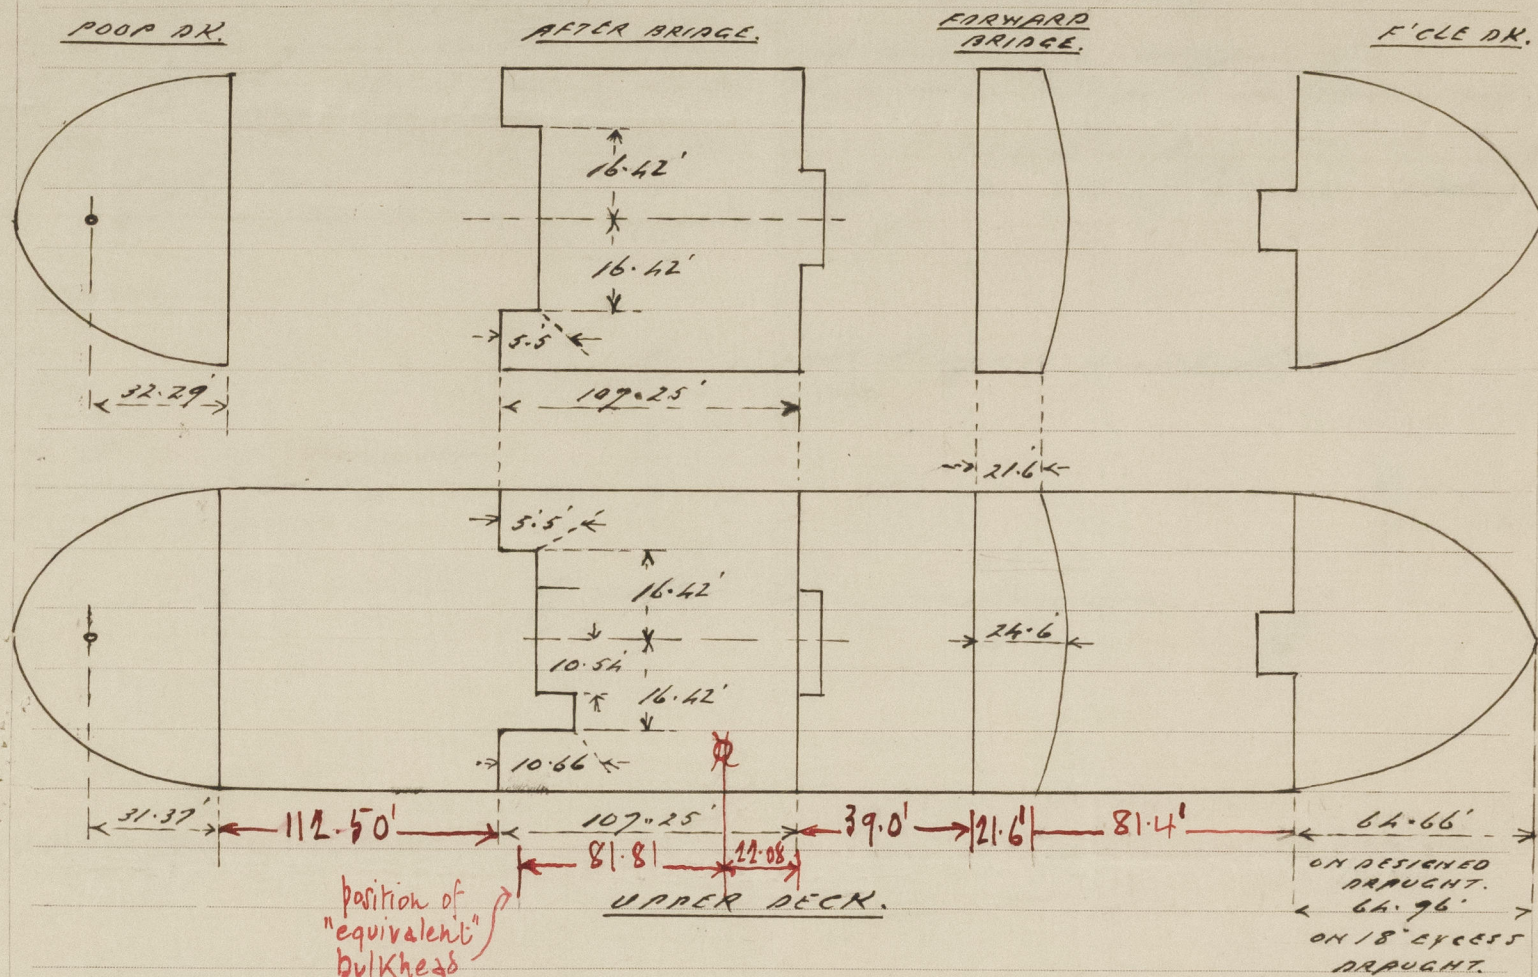 POOP DK.
AFTER BRIDGE.
FORWARD
BRIDGE.
F'CLE DK.
16.42'
16.42'
5.5'
32.29'
107.25'
21.6'
5.5'
16.42'
24.6'
10.54'
16.42'
10.66'
31.37'
112.50'
107.25'
39.0'
21.6'
81.4'
64.66'
81.81
22.08
ON DESIGNED
DRAUGHT.
UPPER DECK.
64.96'
ON 18" EXCESS
DRAUGHT.
position of
"equivalent"
bulkhead